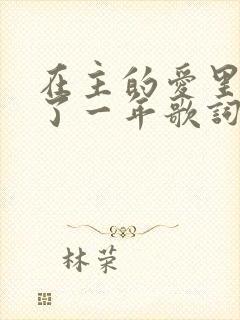 在主的愛里
了一年歌詞
林荣